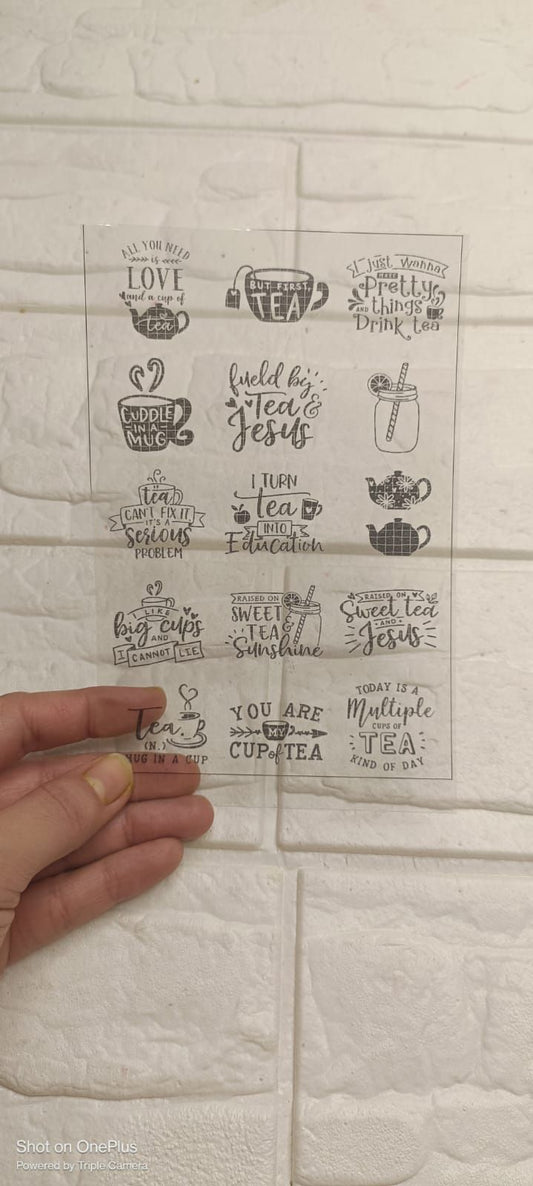 ALL YOU NEED
is
LOVE
and a cup of
tea
BUT FIRST,
TEA
I just wanna
MAKE
Pretty
AND things
Drink tea
CUDDLE
IN A
MUG
fueld by
Tea &
Jesus
tea
CAN'T FIX IT
IT'S A
Serious
PROBLEM
I TURN
tea
INTO
Education
I LIKE
big cups
AND
I CANNOT LIE
RAISED ON
SWEET
TEA &
Sunshine
RAISED ON
Sweet tea
AND
Jesus
Tea.
(N.)
HUG IN A CUP
YOU ARE
MY
CUP of TEA
TODAY IS A
Multiple
CUPS OF
TEA
KIND OF DAY
Shot on OnePlus
Powered by Triple Camera